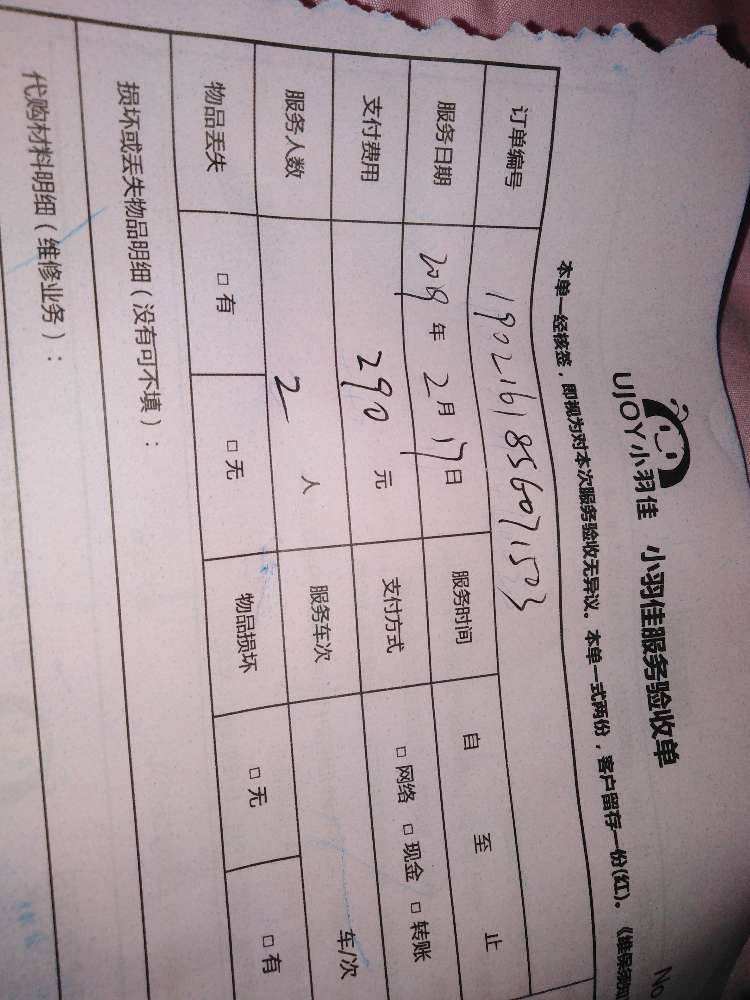 No
UJOY小羽佳 小羽佳服务验收单
本单一经核签，即视为对本次服务验收无异议。本单一式两份，客户留存一份(红)。
订单编号 1902161856071503
服务日期 2019年2月17日 服务时间 自 至 止
支付费用 290元 支付方式 □网络 □现金 □转账
服务人数 2人 服务车次 车/次
物品丢失 □有 □无 物品损坏 □无 □有
损坏或丢失物品明细（没有可不填）：
代购材料明细（维修业务）：